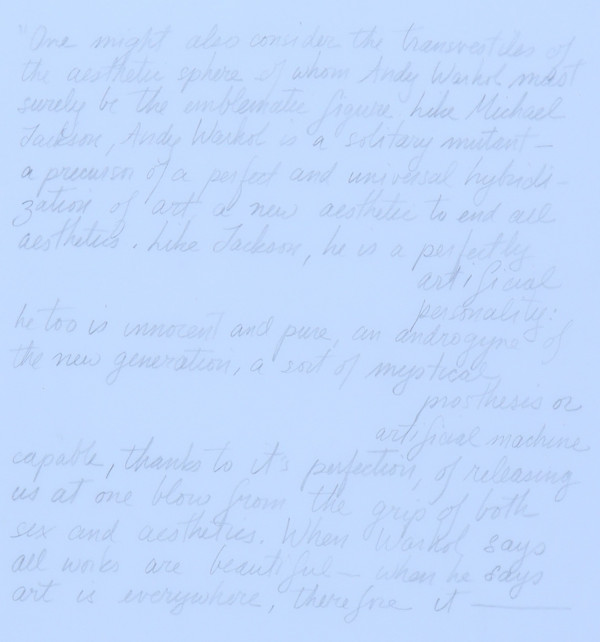 "One might also consider the transvestites of
the aesthetic sphere of whom Andy Warhol must
surely be the emblematic figure. Like Michael
Jackson, Andy Warhol is a solitary mutant –
a precursor of a perfect and universal hybridi-
zation of art, a new aesthetic to end all
aesthetics. Like Jackson, he is a perfectly
artificial
personality:
he too is innocent and pure, an androgyne of
the new generation, a sort of mystical
prosthesis or
artificial machine
capable, thanks to it's perfection, of releasing
us at one blow from the grip of both
sex and aesthetics. When Warhol says
all works are beautiful – when he says
art is everywhere, therefore it ———